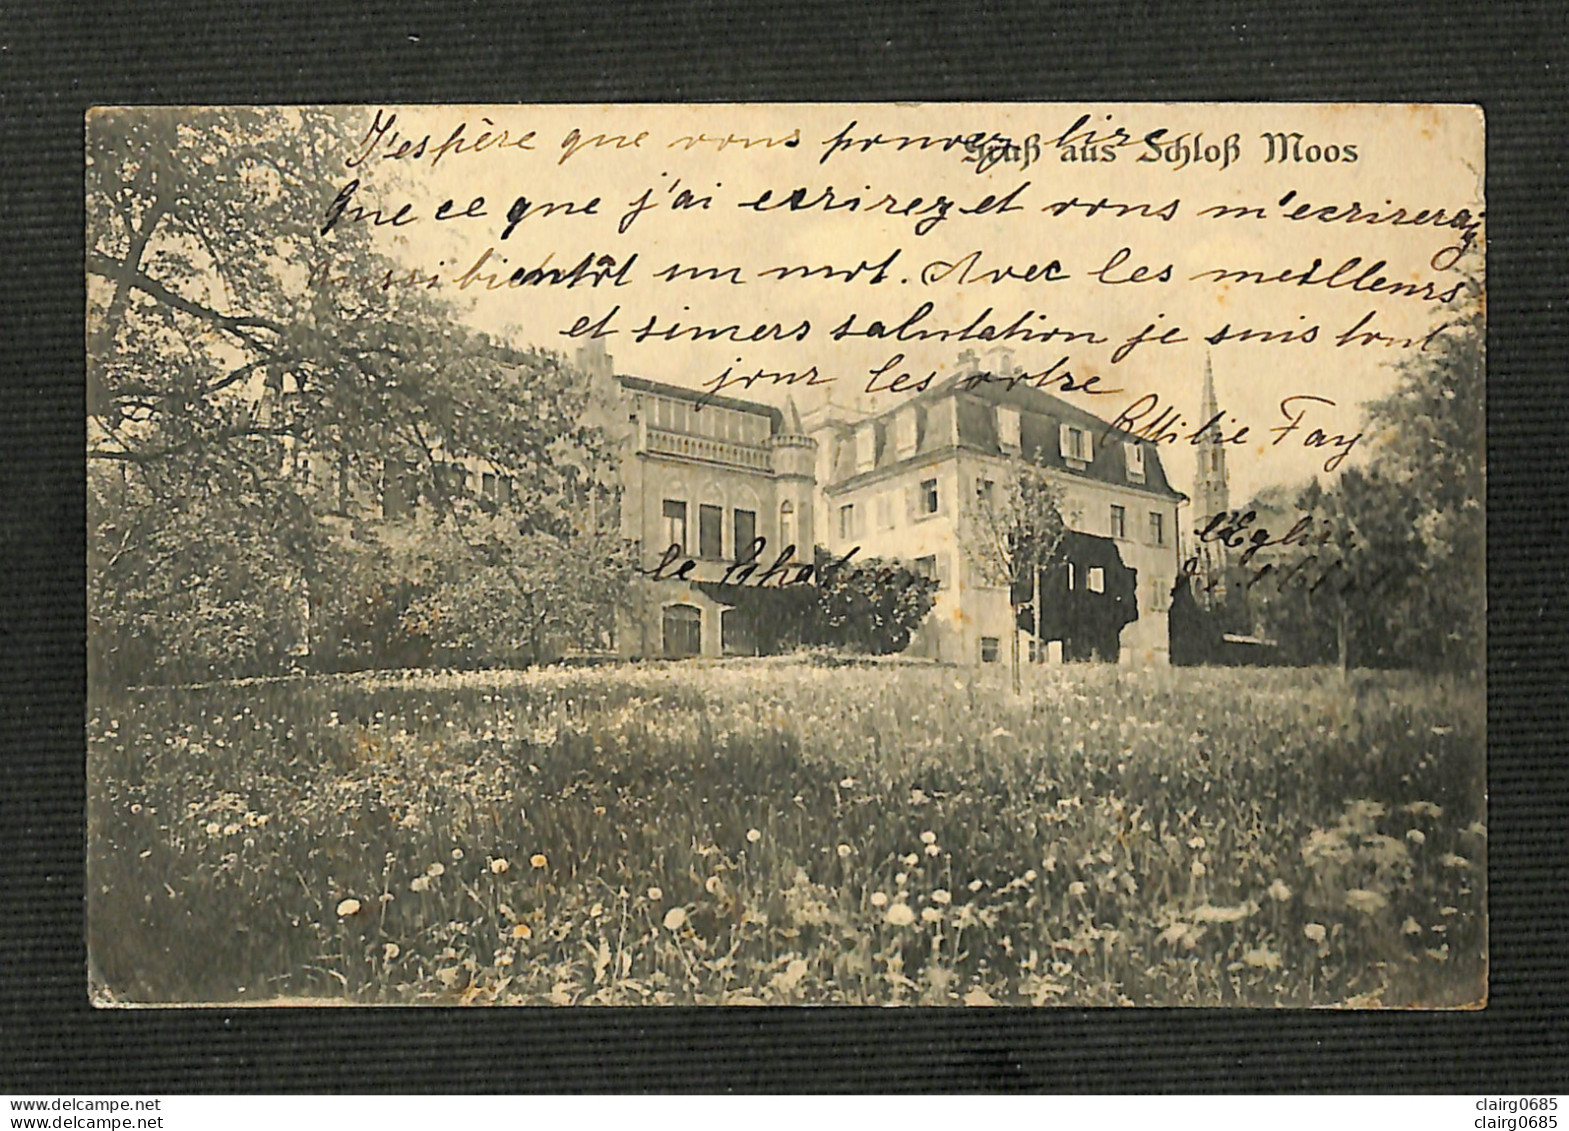 J'espère que vous pouvez lire
Gruß aus Schloß Moos
Que ce que j'ai ecrirez et vous m'ecrirerai
aussibientôt un mot. Avec les meilleurs
et simers salutation je suis tout
jour les votre
Fay
le Chateau
l'Eglise
www.delcampe.net
clairg0685
clairg0685